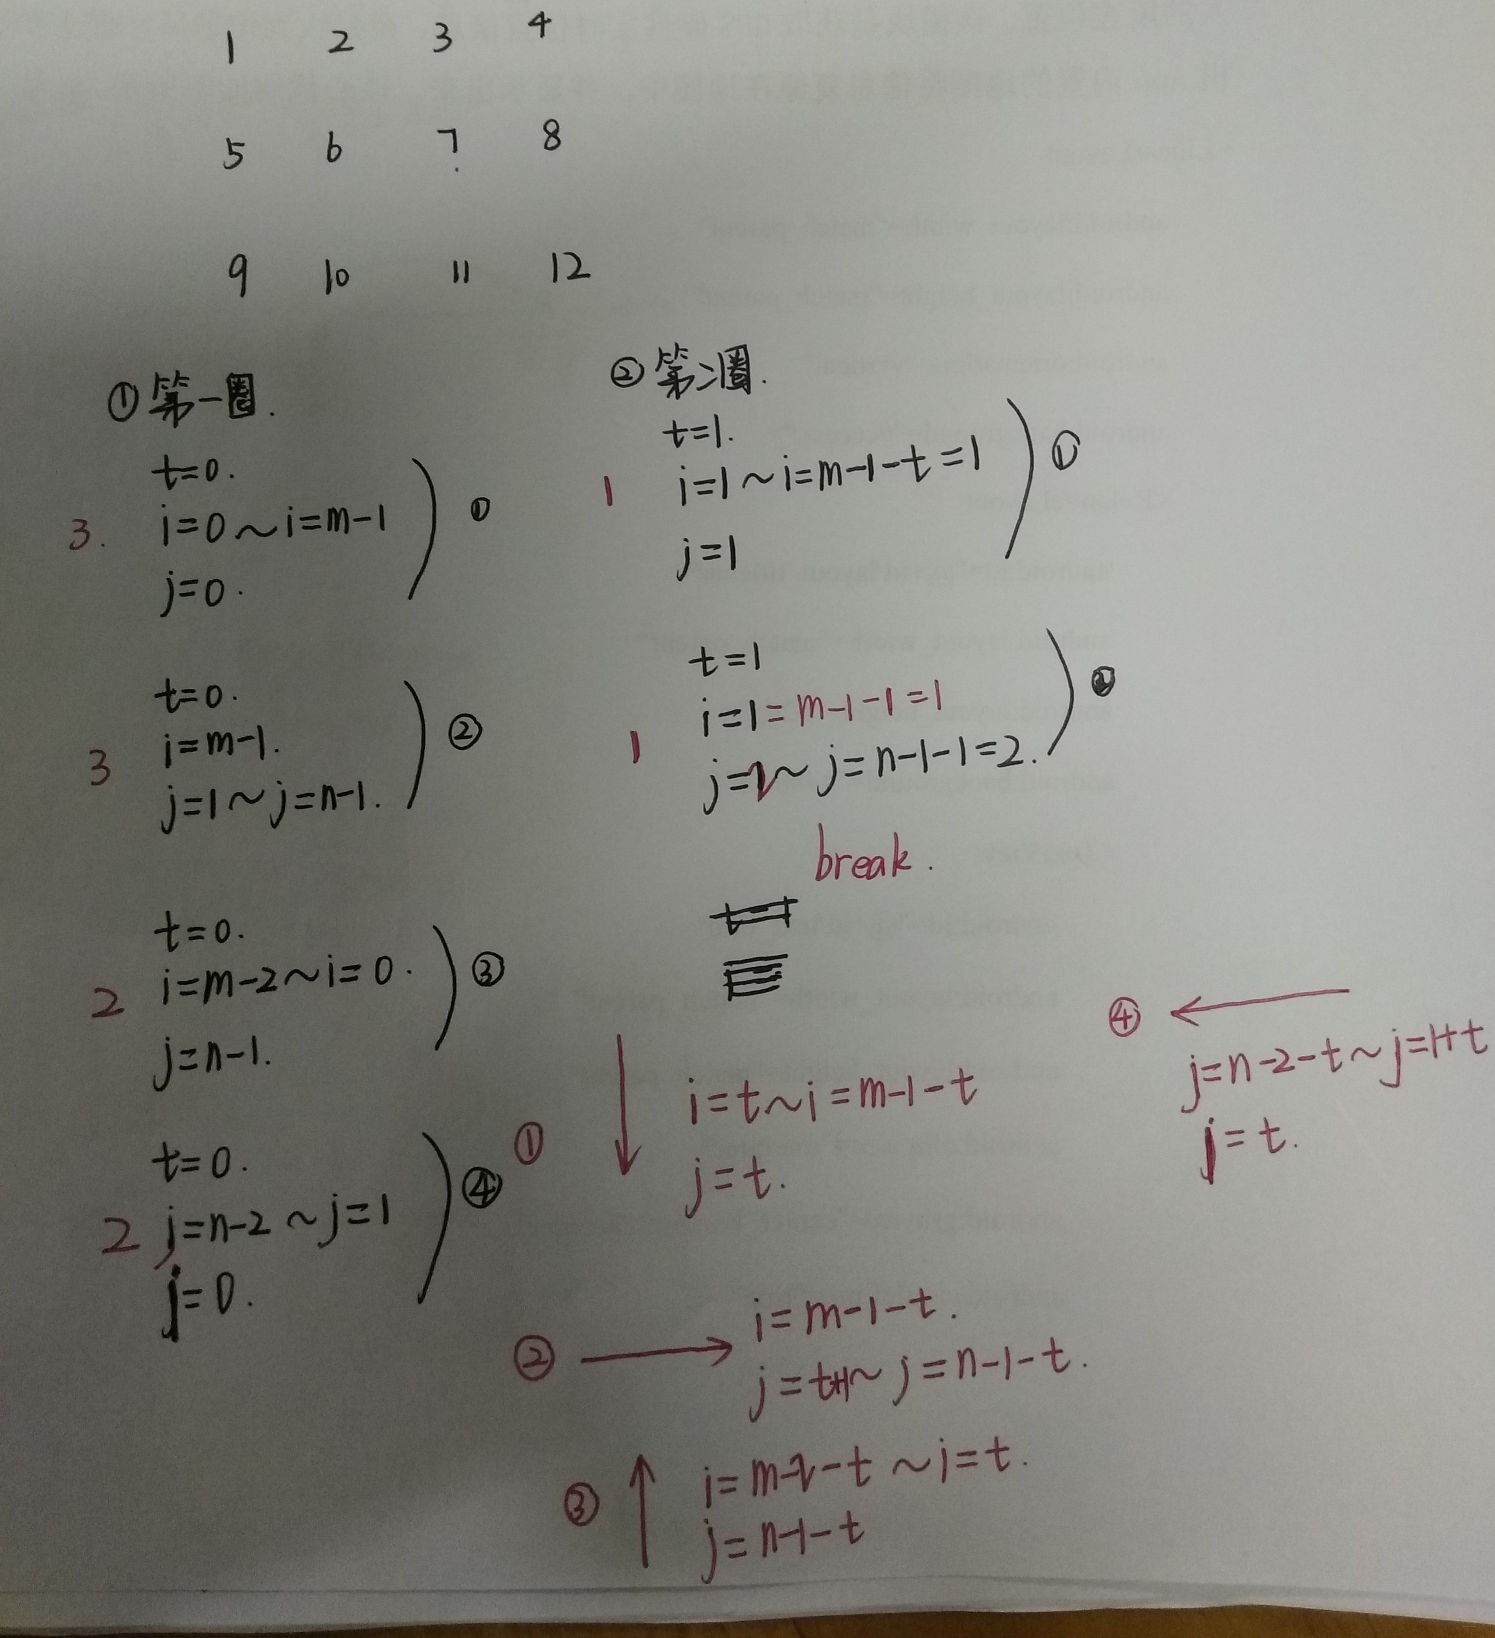 1 2 3 4
5 6 7 8
9 10 11 12
①第一圈.
t=0.
3. i=0~i=m-1 ①
j=0.
t=0.
3 i=m-1. ②
j=1~j=n-1.
t=0.
2 i=m-2~i=0. ③
j=n-1.
t=0.
2 j=n-2~j=1 ④
j=0.
②第二圈.
t=1.
1 i=1~i=m-1-t=1 ①
j=1
t=1
i=1=m-1-1=1 ②
1 j=2~j=n-1-1=2.
break.
① i=t~i=m-1-t
j=t.
② → i=m-1-t.
j=t+1~j=n-1-t.
③ ↑ i=m-2-t~i=t.
j=n-1-t
④ ←
j=n-2-t~j=1+t
j=t.